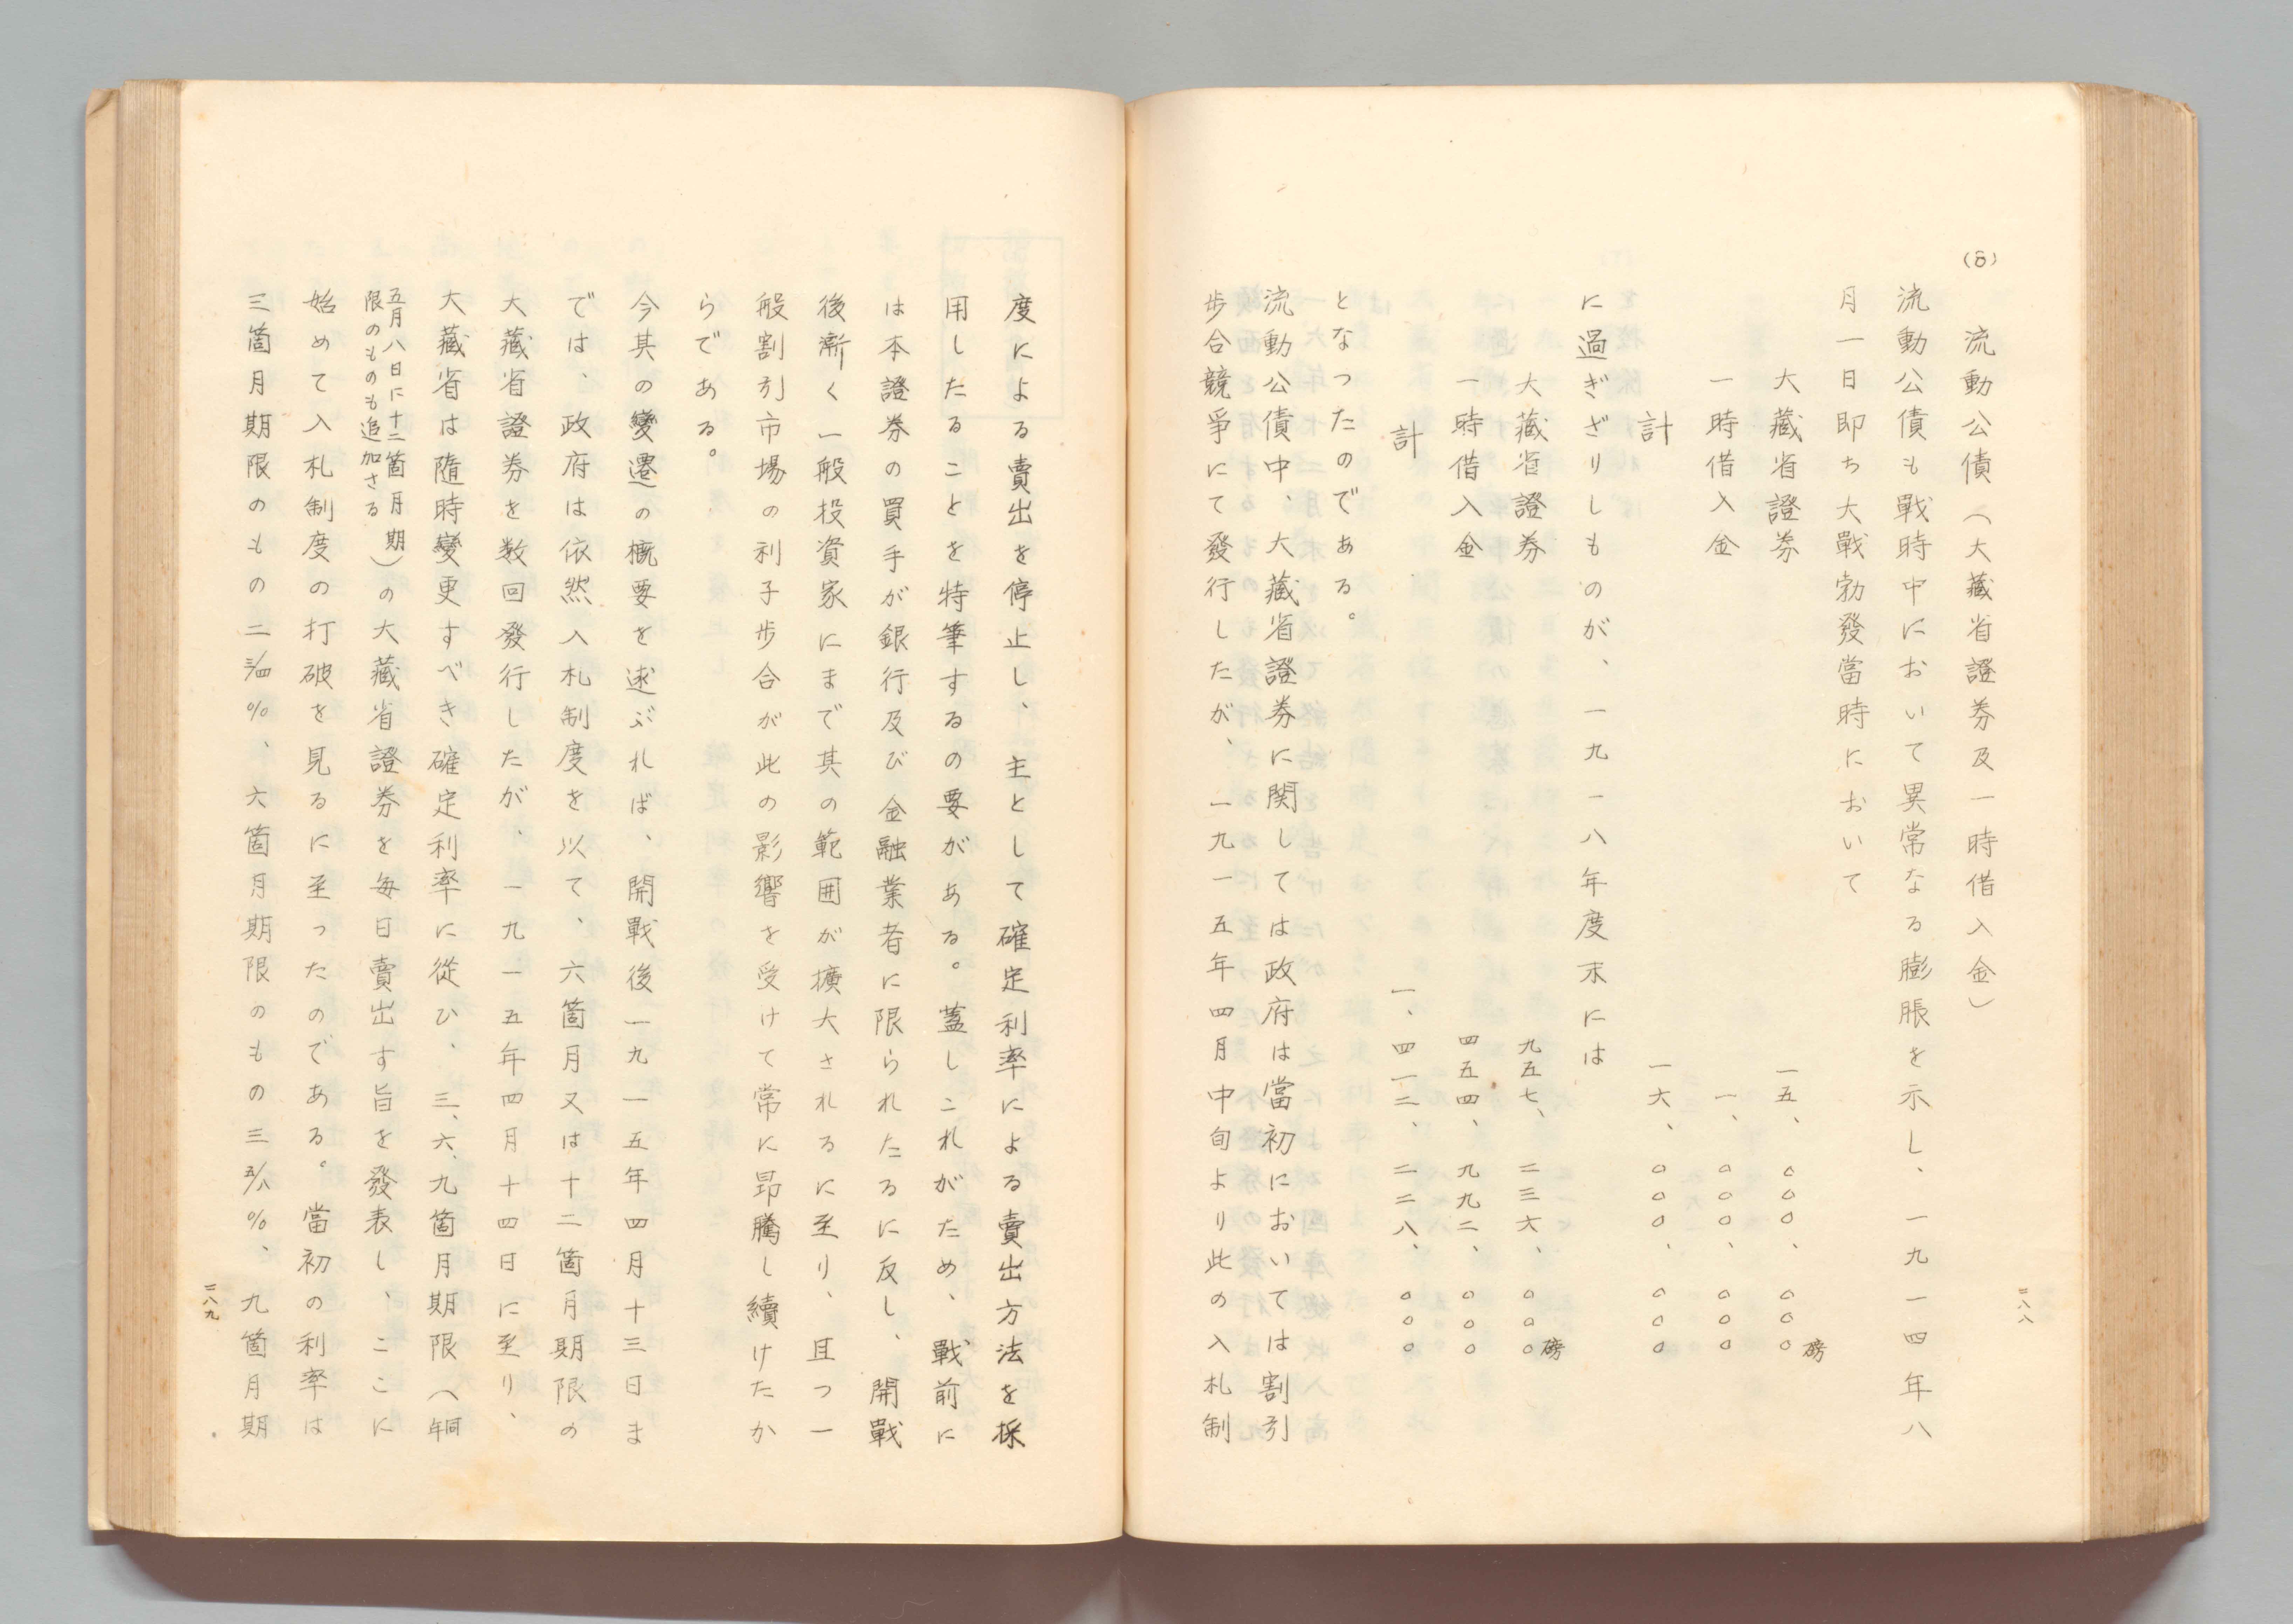 二八八
(8) 流動公債(大藏省證券及一時借入金)
流動公債も戰時中において異常なる膨脹を示し、一九一四年八
月一日即ち大戰勃發當時において
大藏省證券 一五、〇〇〇、〇〇〇磅
一時借入金 一、〇〇〇、〇〇〇
計 一六、〇〇〇、〇〇〇
に過ぎざりしものが、一九一八年度末には
大藏省證券 九五七、二三六、〇〇〇磅
一時借入金 四五四、九九二、〇〇〇
計 一、四一二、二二八、〇〇〇
となつたのである。
流動公債中、大藏省證券に関しては政府は當初においては割引
歩合競爭にて發行したが、一九一五年四月中旬より此の入札制
度による賣出を停止し、主として確定利率による賣出方法を採
用したることを特筆するの要がある。蓋しこれがため、戰前に
は本證券の買手が銀行及び金融業者に限られたるに反し、開戰
後漸く一般投資家にまで其の範囲が擴大されるに至り、且つ一
般割引市場の利子歩合が此の影響を受けて常に昂騰し續けたか
らである。
今其の變遷の概要を述ぶれば、開戰後一九一五年四月十三日ま
では、政府は依然入札制度を以て、六箇月又は十二箇月期限の
大藏省證券を数回發行したが、一九一五年四月十四日に至り、
大藏省は隨時變更すべき確定利率に從ひ、三、六、九箇月期限(同年
五月八日に十二箇月期
限のものも追加さる)の大藏省證券を毎日賣出す旨を發表し、ここに
始めて入札制度の打破を見るに至つたのである。當初の利率は
三箇月期限のもの二三/四%、六箇月期限のもの三五/八%、九箇月期
二八九